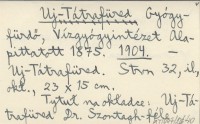 Uj-Tátrafüred Gyógy-
fürdő, Vizgyógyintézet Ala-
pittatott 1875. 1904. —
Uj-Tátrafüred. Strn 32, il,
obr., 23 x 15 cm.
Tytuł na okładce: Uj-Tá-
trafüred Dr. Szontagh-féle